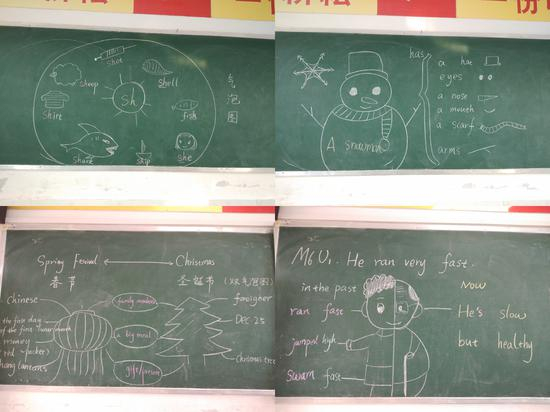 shot
sheep
shell
Sh
shirt
fish
shark
ship
she
气泡图
has
a hat
eyes
a nose
a mouth
a scarf
arms
A snowman
Spring Festival
Christmas
春节
圣诞节(双气泡图)
Chinese
family members
foreigner
the first day
of the first lunar month
a big meal
Dec 25
(red packet)
hang lanterns
gift/present
Christmas tree
M6 U1. He ran very fast.
in the past
Now
ran fast
He's slow
jumped high
but healthy
Swam fast